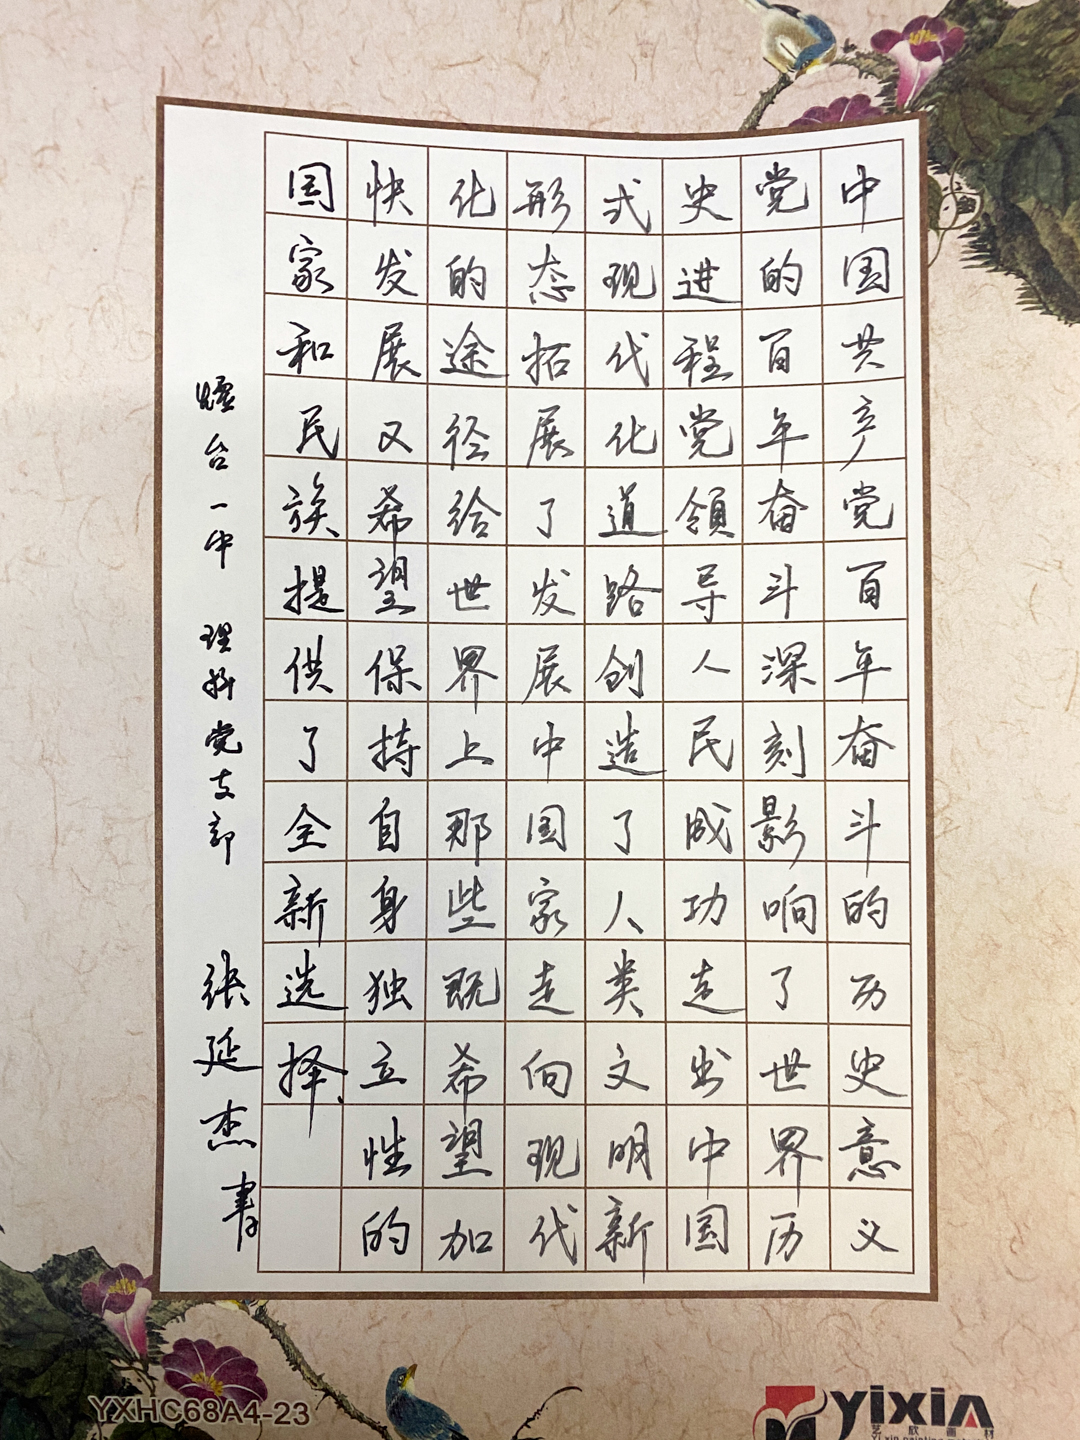 中国共产党百年奋斗的历史意义
党的百年奋斗深刻影响了世界历
史进程党领导人民成功走出中国
式现代化道路创造了人类文明新
形态拓展了发展中国家走向现代
化的途径给世界上那些既希望加
快发展又希望保持自身独立性的
国家和民族提供了全新选择、
烟台一中 理科党支部 张延杰书
YXHC68A4-23
yixiA
艺欣画材